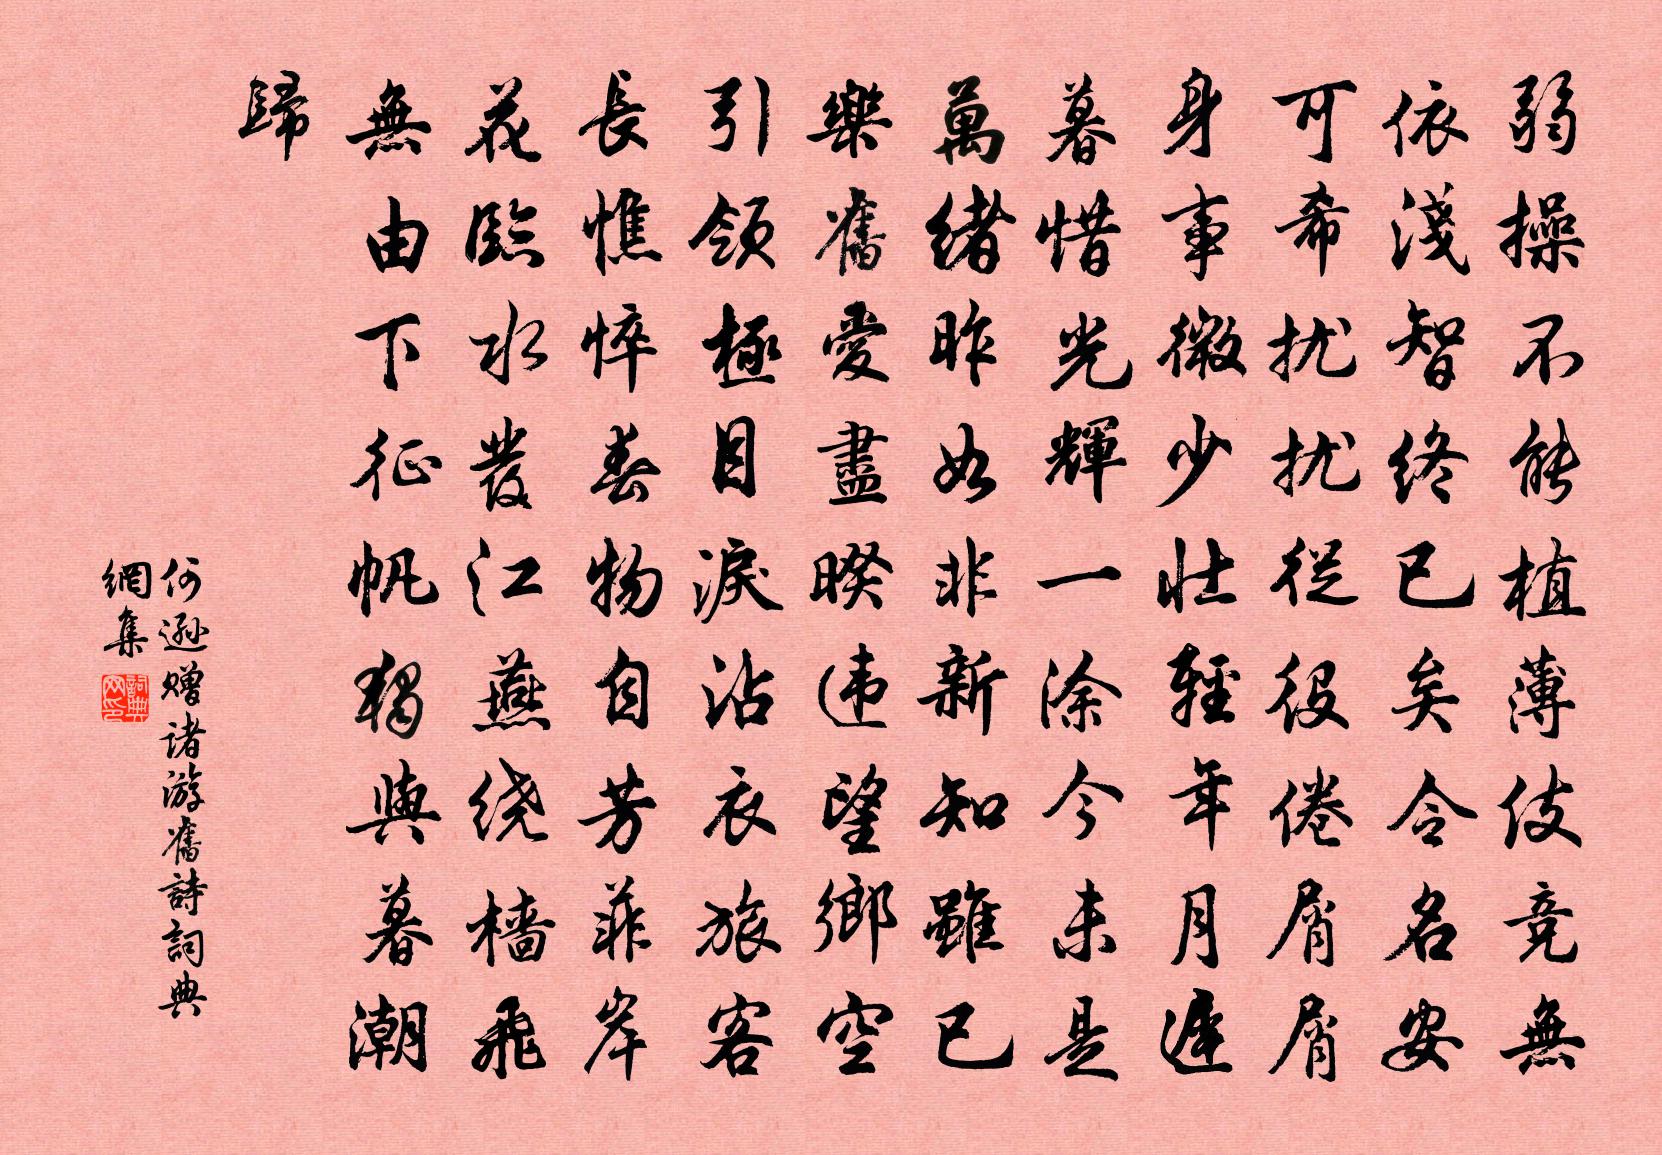 弱操不能植薄伎竞無
依淺智終已矣令名安
可希扰扰從役倦屑屑
身事微少壮輕年月遲
暮惜光輝一涂今未是
萬緒昨如非新知雖已
樂舊愛盡暌违望鄉空
引領極目淚沾衣旅客
長憔悴春物自芳菲岸
花臨水發江燕绕檣飛
無由下征帆獨與暮潮
歸
何遜赠诸游舊詩詞典
網集
詞典网印